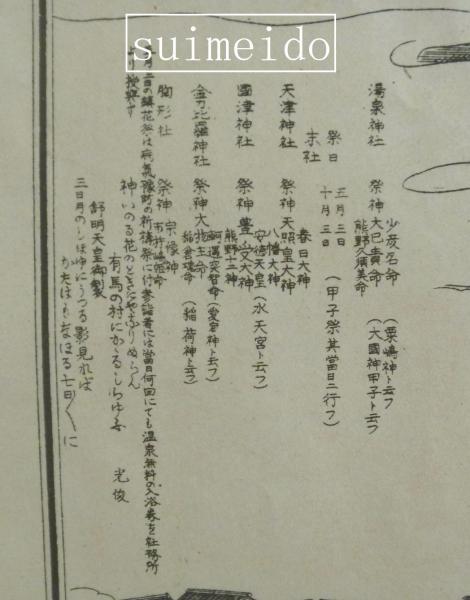 suimeido
湯泉神社 祭神 大己貴命 (大國神甲子ト云フ)
少彦名命 (粟嶋神ト云フ)
熊野久須美命
祭日 五月三日
十月三日 (甲子祭其當日ニ行フ)
末社
天津神社 祭神 天照皇大神
春日大神
八幡大神
國津神社 祭神 豊受大神
安徳天皇 (水天宮ト云フ)
熊野十二神
金刀比羅神社 祭神 大物主命
軻遇突智命 (愛宕神ト云フ)
稲倉魂命 (稲荷神ト云フ)
胸形社 祭神 宗像神
市杵嶋姫命
月二日の鎮花祭は病氣豫防の祈祷祭に付参詣者には當日何回にても温泉無料の入浴券を社務所
より授與す
神いのる花のときにやなりぬらん
有馬の村にかゝるしらゆふ 光俊
舒明天皇御製
三日月のしほゆにうつる影見れば
かたはもなほる七日〱に